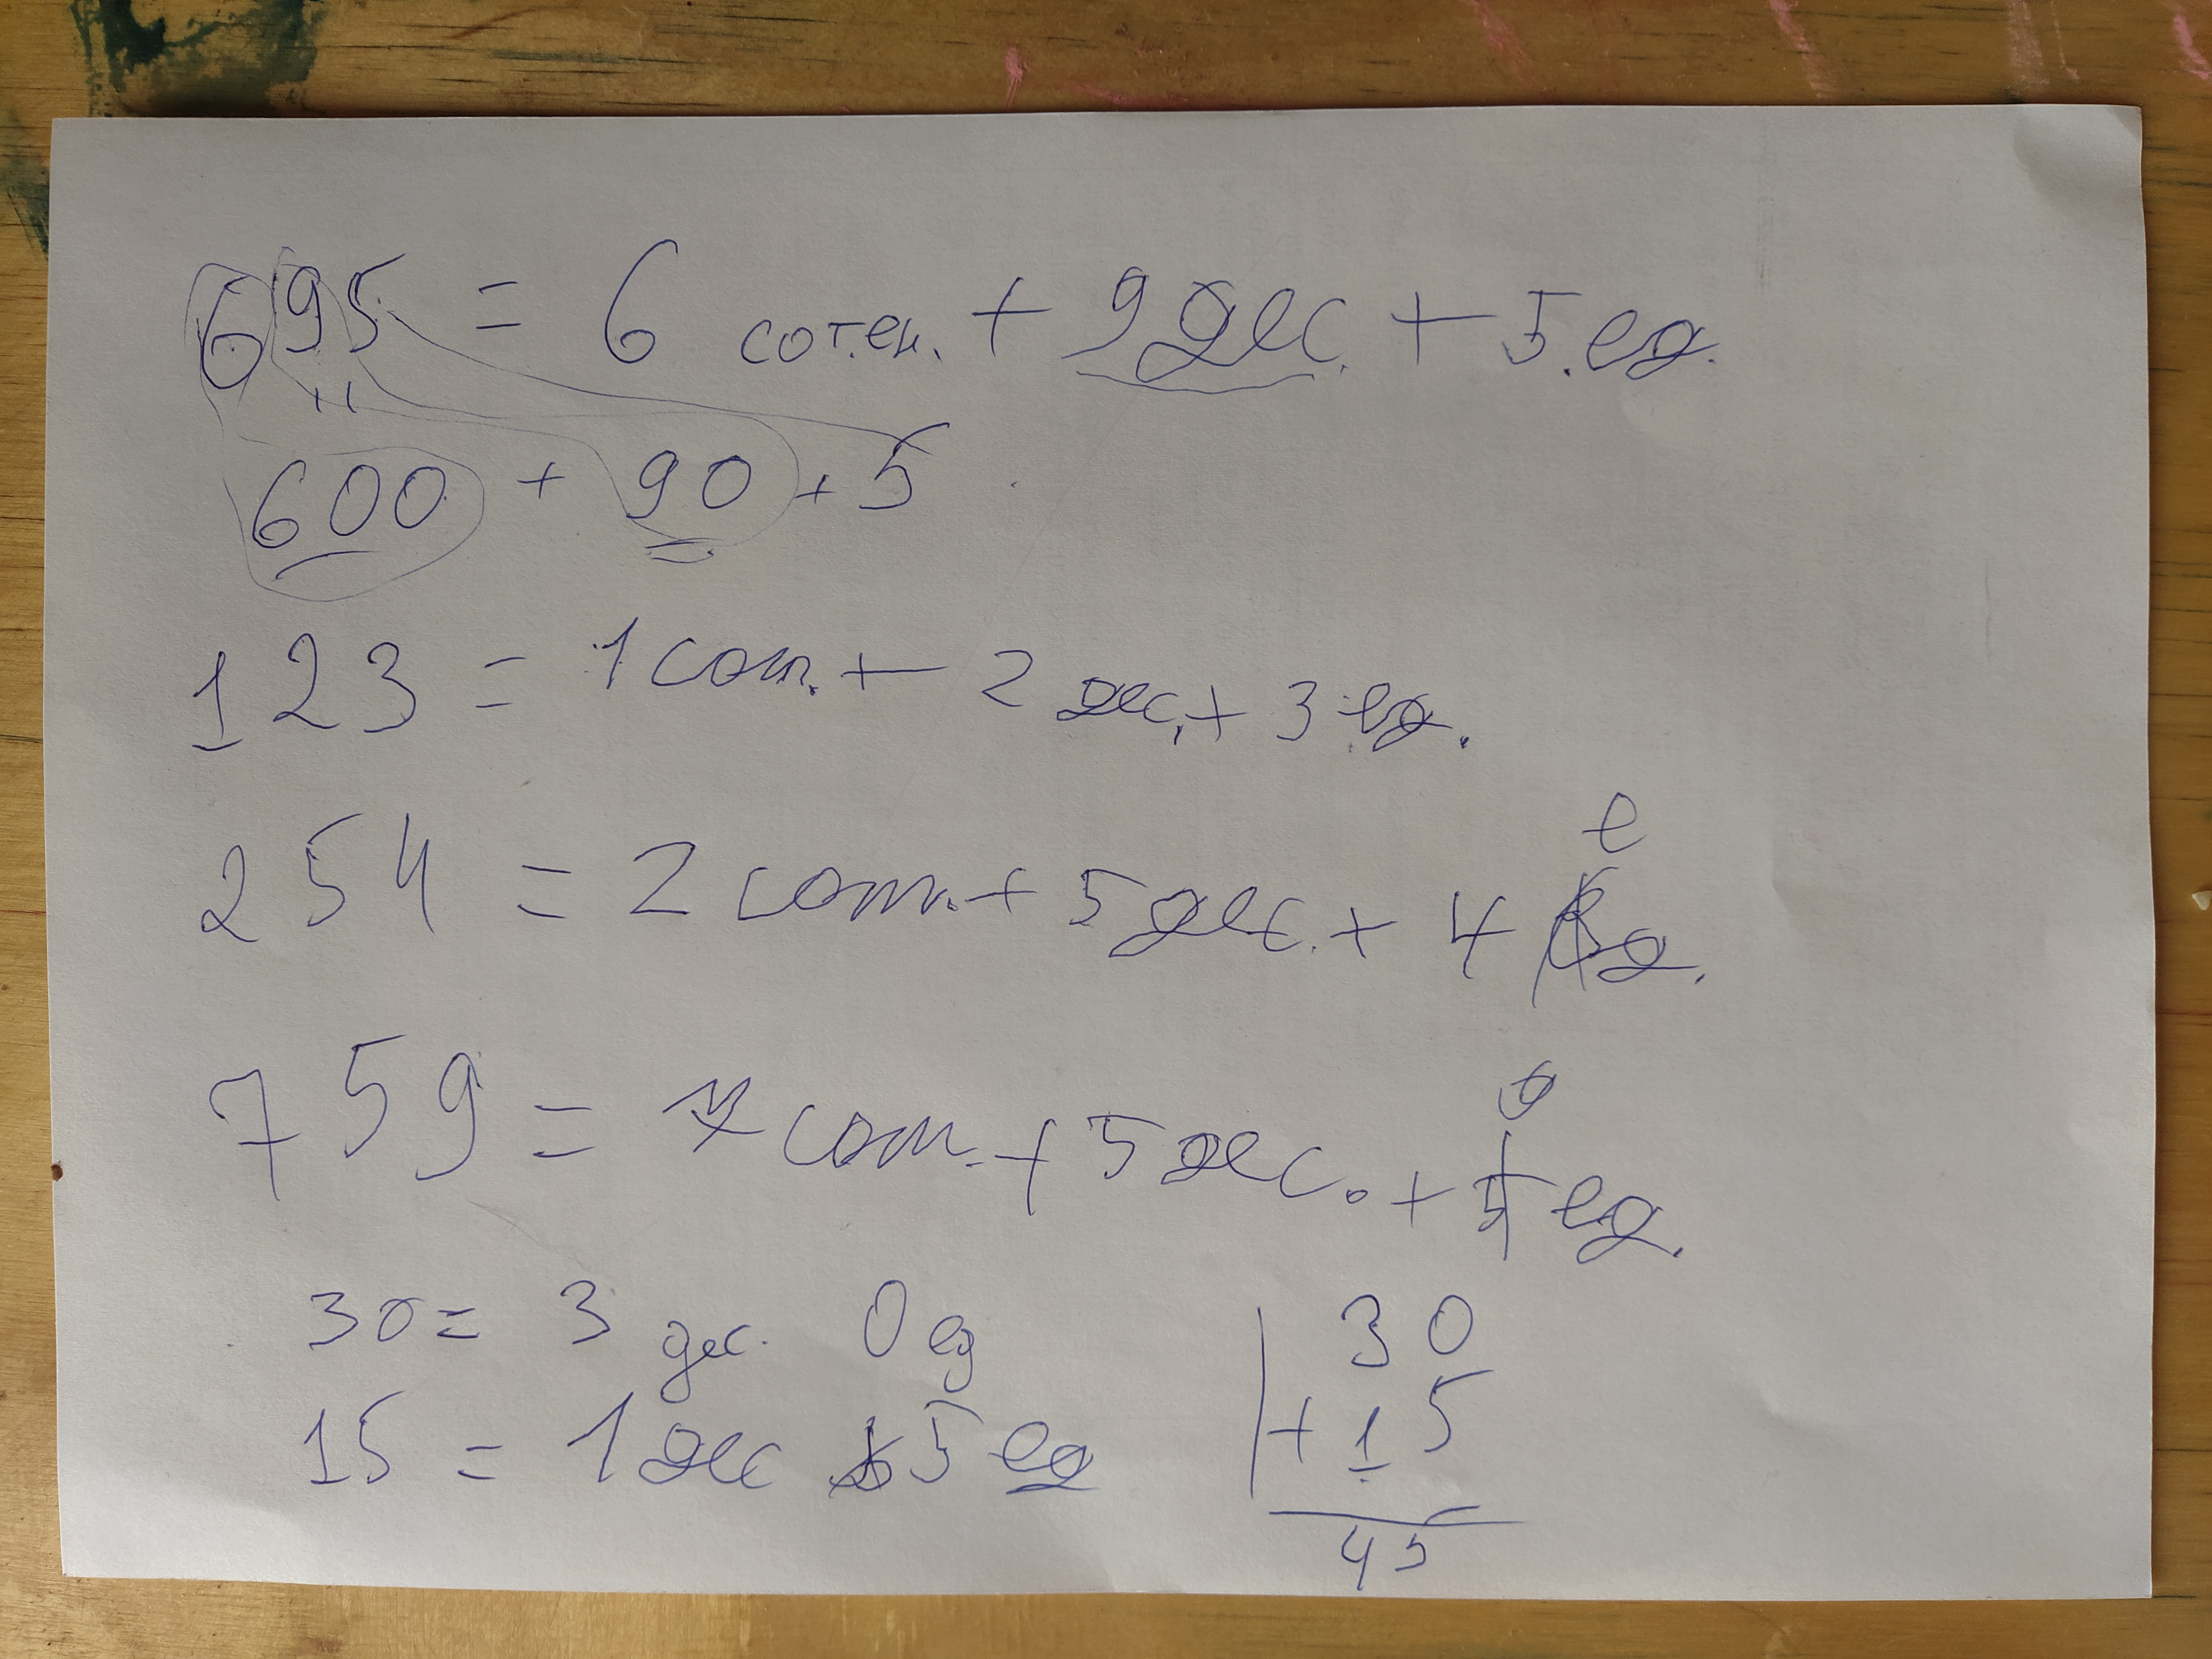 695 = 6 сотен. + 9 дес. + 5.ед.
600 + 90 + 5
123 = 1 сот. + 2 дес. + 3 ед.
254 = 2 сот. + 5 дес. + 4 ед.
759 = 7 сот. + 5 дес. + ед.
30 = 3 дес. 0 ед
15 = 1 дес 5 ед
30
+ 15
45